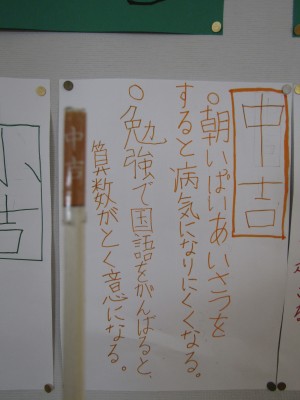 中吉
○朝いぱいあいさつを
すると病気になりにくくなる。
○勉強で国語をがんばると、
算数がとく意になる。
中吉
小吉